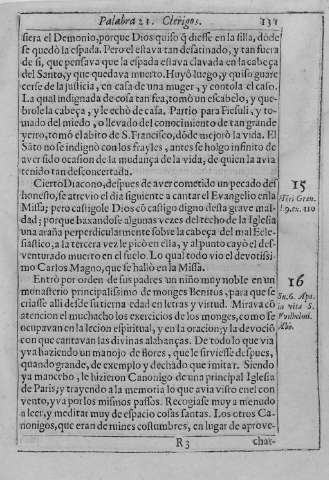 Palabra 21. Clerigos. 131
siera el Demonio, porque Dios quiso q̃ diesse en la silla, dõde
se quedò la espada. Pero el estava tan desatinado, y tan fuera
de si, que pensava que la espada estava clavada en la cabeça
del Santo, y que quedava muerto. Huyò luego, y quiso guare
cerse de la justicia, en casa de una muger, y contola el caso.
La qual indignada de cosa tan fea, tomò un escabelo, y que-
brole la cabeça, y le echò de casa. Partio para Fiesuli, y to-
mado del miedo, o llevado del conocimiento de tan grande
yerro, tomò el abito de S. Francisco, dõde mejorò la vida. El
Sãto no se indignò con los frayles, antes se holgo infinito de
aver sido ocasion de la mudança de la vida, de quien la avia
tenido tan desconcertada.
Cierto Diacono, despues de aver cometido un pecado des
honesto, se atrevio el dia siguiente a cantar el Evangelio en la
Missa; pero castigole Dios cõ castigo digno desta grave mal-
dad; porque baxandose algunas vezes del techo de la Iglesia
una araña perpendicularmente sobre la cabeça del mal Ecle-
siastico, a la tercera vez le picò en ella, y al punto cayò el des-
venturado muerto en el suelo. Lo qual todo vio el devotissi-
mo Carlos Magno, que se hallò en la Missa.
15
Entrò por orden de sus padres un niño muy noble en un
monasterio principalissimo de monges Benitos, para que se
criasse alli desde su tierna edad en letras y virtud. Mirava cõ
atencion el muchacho los exercicios de los monges, como se
ocupavan en la lecion espiritual, y en la oracion; y la devociõ
con que cantavan las divinas alabanças. De todo lo que via
yva haziendo un manojo de flores, que le sirviesse despues,
quando grande, de exemplo y dechado que imitar. Siendo
ya mancebo, le hizieron Canonigo de una principal Iglesia
de Paris; y trayendo a la memoria lo que avia visto en el con
vento, yva por los mismos passos. Recogiase muy a menudo
a leer, y meditar muy de espacio cosas santas. Los otros Ca-
nonigos, que eran de ruines costumbres, en lugar de aprove-
16
R 3
char-